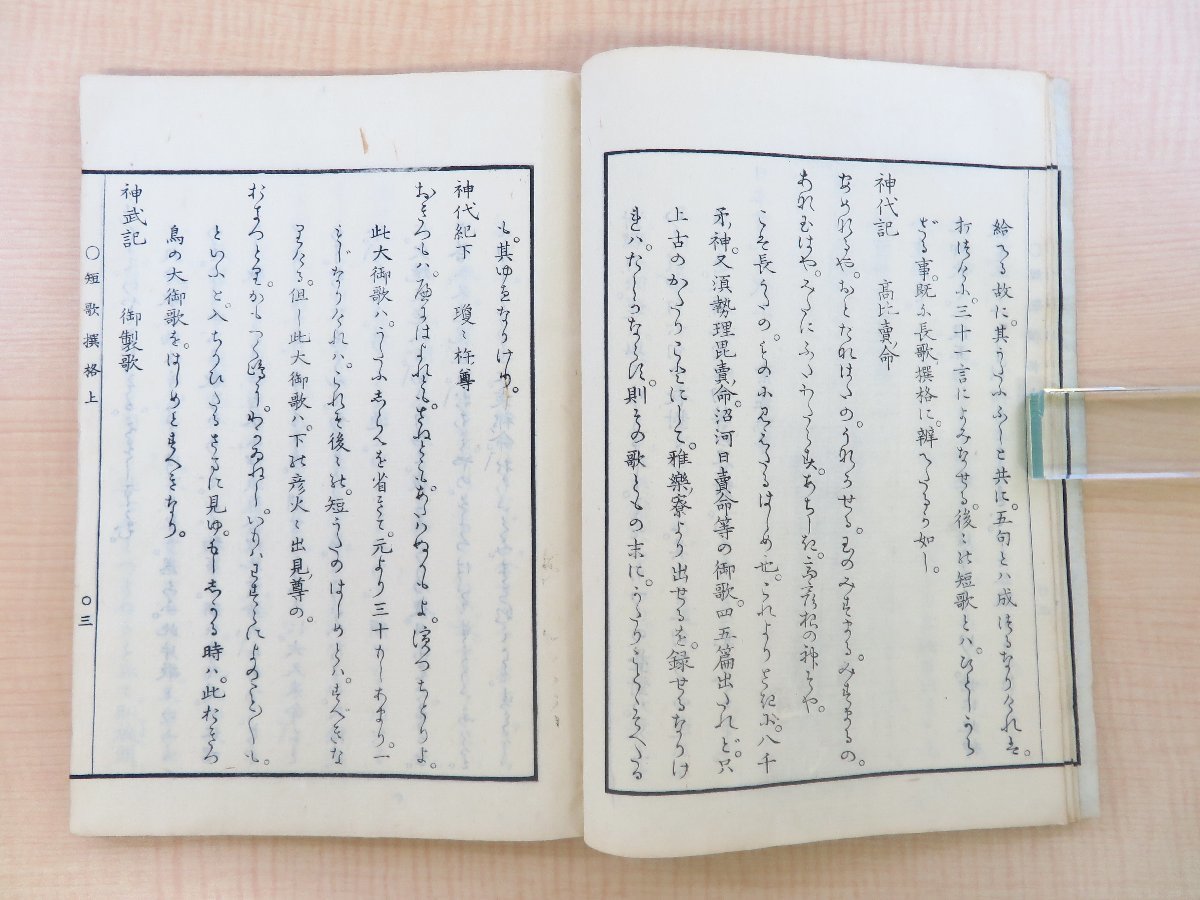 給へる故に。其うたふふしと共に。五句とハ成けるなりけれは。
打つけに。三十一言によみなせる。後々の短歌とハ。ひとしから
ざる事。既に長歌撰格に。辨へたるが如し。
神代記 高比賣命
あめなるや。おとたなはたの。うながせる。玉のみすまる。みすまるの。
あなたまはや。みたにふたわたらす。あちしき。高彦根の神そや。
こそ長うたの。ものに見えたるはしめ也。これよりさきに。八千
矛神。又須勢理毘賣命。沼河日賣命等の御歌。四五篇出たれど。只
上古のかたりことにして。雅樂寮より出せるを。録せるなりけ
れハ。たしかならす。則その歌ともの末に。かたりことゝそへたる
も。其ゆゑなりけり。
神代紀下 瓊々杵尊
おきつもハ。へにはよれとも。さねとこも。あたハぬかもよ。濱つちとりよ。
此大御歌ハ。うたふしらへを省きて。元より三十もしあまり。一
もじなりけれハ。これそ後々の。短うたのはしめとハ。すべきな
りける。但し此大御歌ハ。下の彦火々出見尊の。
おきつとり。かもつく嶋に。わかゐねし。いもハわすらに。よのことことも。
といふと。入ちかひたるさまに見ゆ。もししかる時ハ。此おきつ
鳥の大御歌を。はしめとすへきなり。
神武記 御製歌
○短歌撰格上 ○三